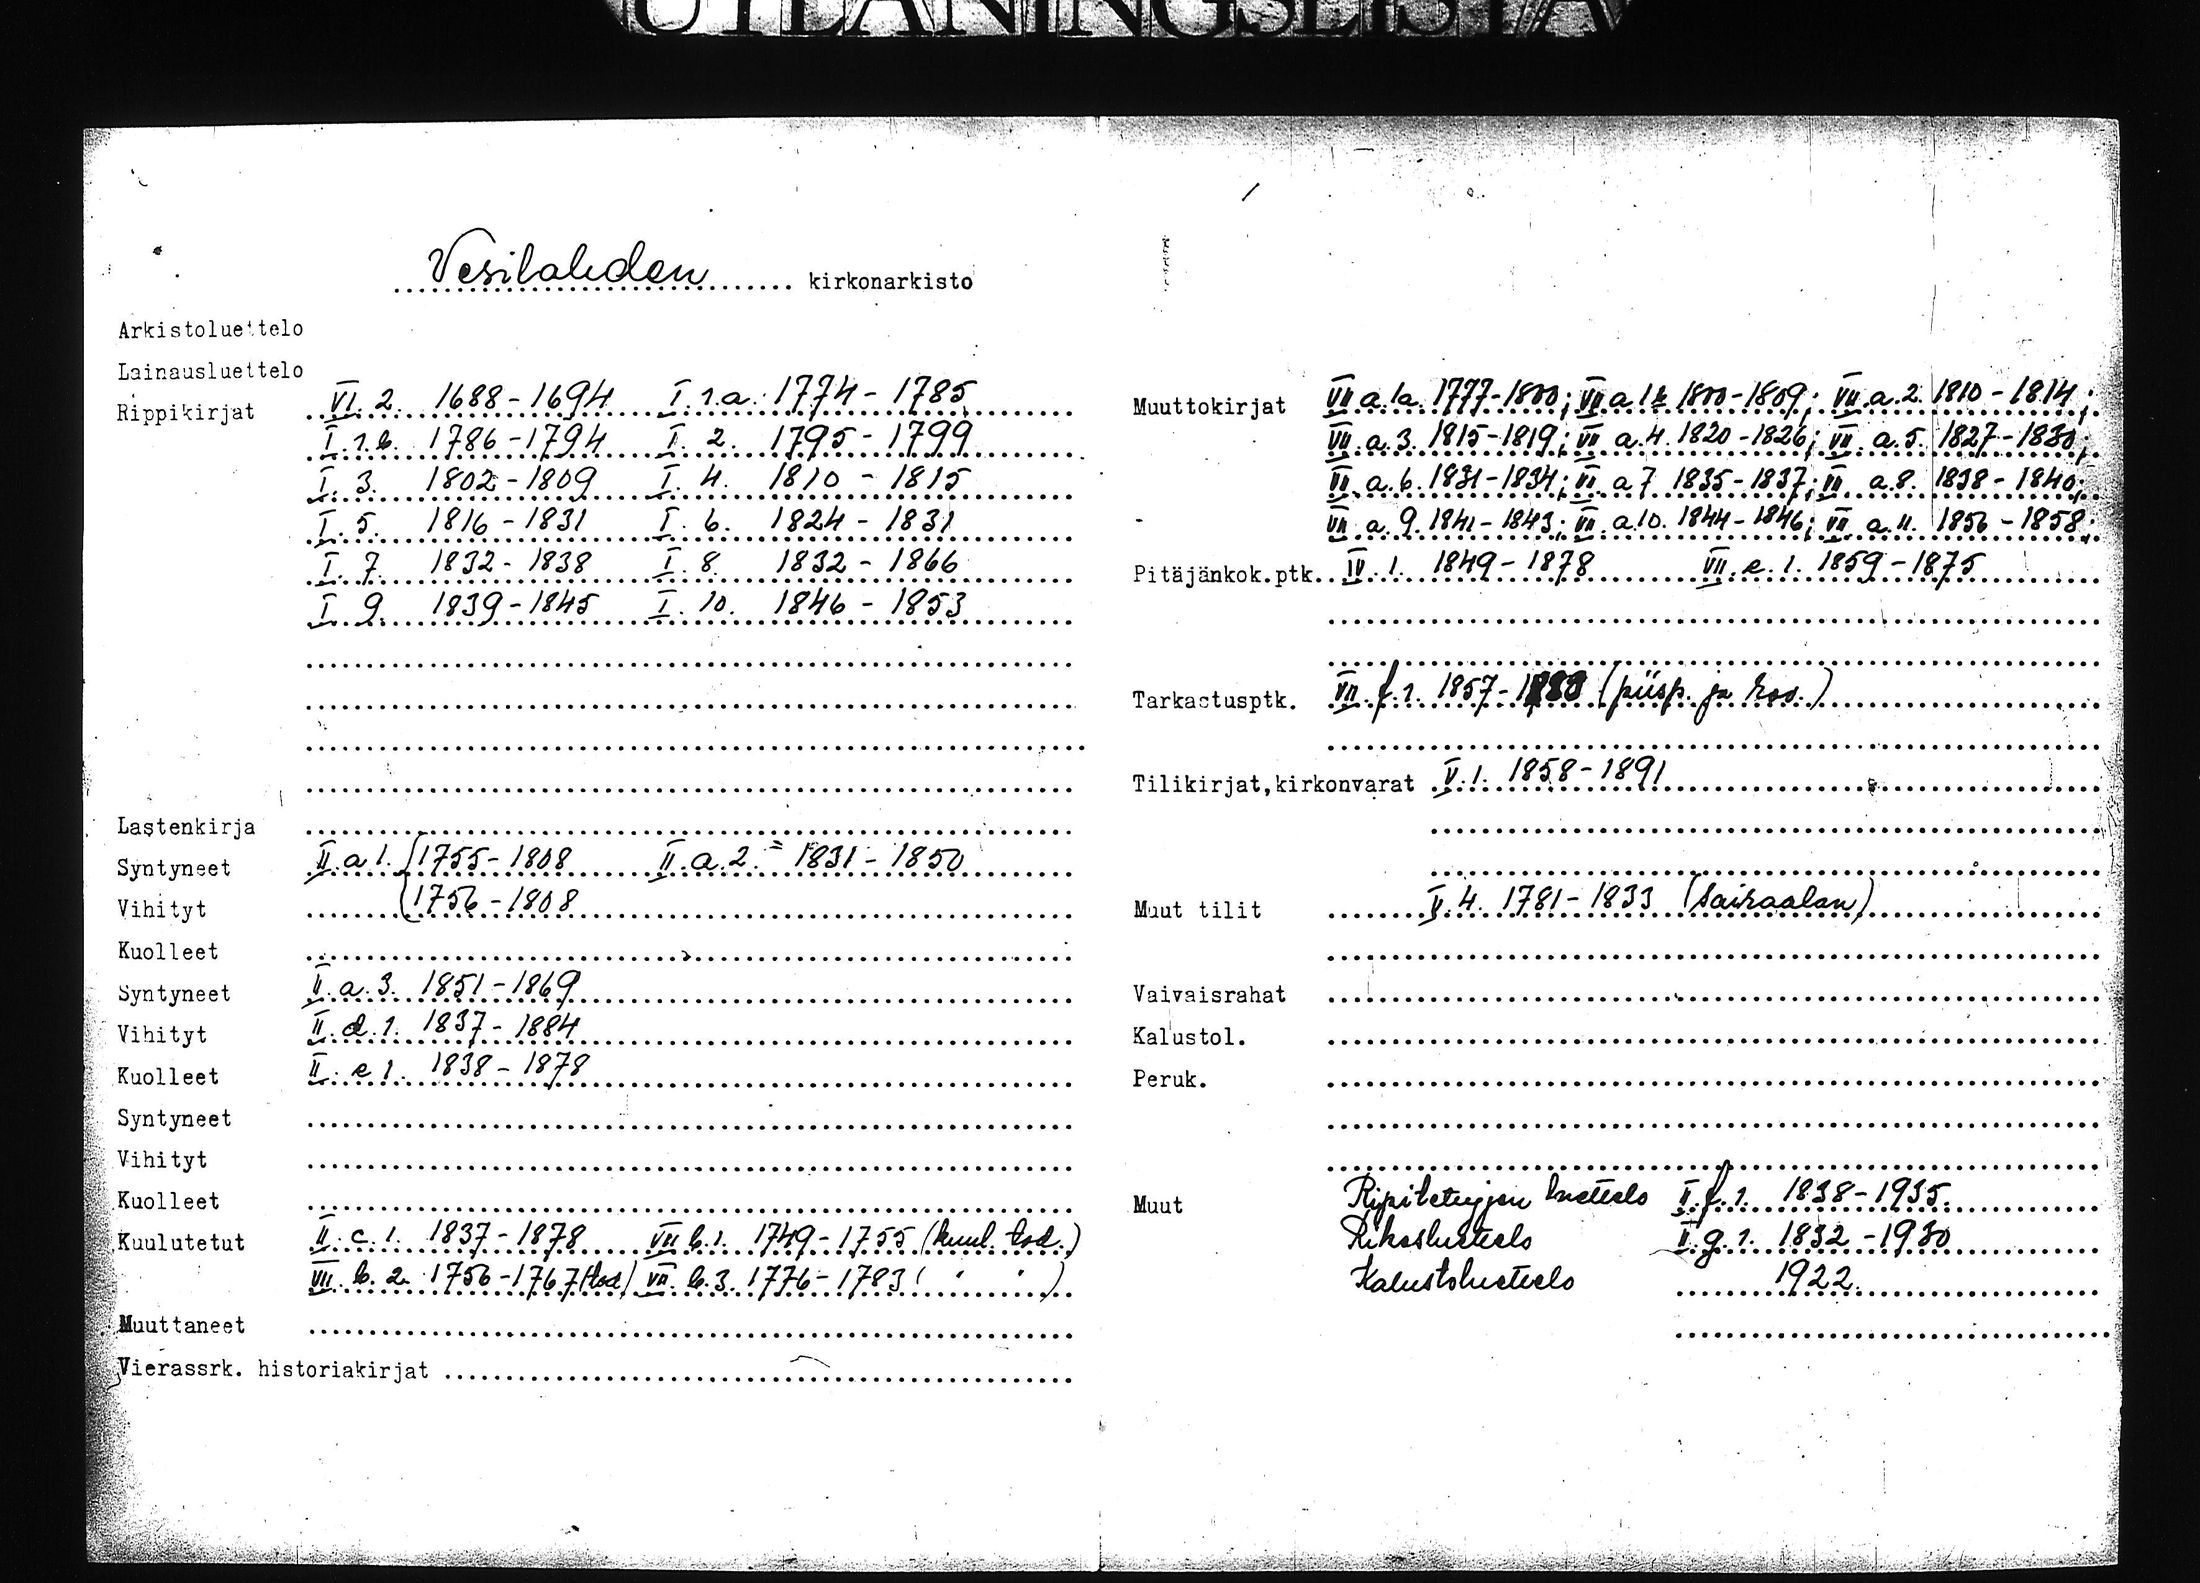 UTLÅNINGSLISTA
Vesilahden kirkonarkisto
Arkistoluettelo
Lainausluettelo
Rippikirjat VI. 2. 1688-1694 I. 1.a. 1774-1785
I. 1.b. 1786-1794 I. 2. 1795-1799
I. 3. 1802-1809 I. 4. 1810-1815
I. 5. 1816-1831 I. 6. 1824-1831
I. 7 1832-1838 I. 8. 1832-1866
I. 9. 1839-1845 I. 10. 1846-1853
Lastenkirja
Syntyneet II. a 1. 1755-1808 II. a. 2. 1831-1850
Vihityt 1756-1808
Kuolleet
Syntyneet II. a. 3. 1851-1869
Vihityt II. d. 1. 1837-1884
Kuolleet II. e 1. 1838-1878
Syntyneet
Vihityt
Kuolleet
Kuulutetut II. c. 1. 1837-1878 VII b. 1. 1749-1755 (kuul. tod.)
VII. b. 2. 1756-1767 (tod) VII. b. 3. 1776-1783 ( " " )
Muuttaneet
Vierassrk. historiakirjat
Muuttokirjat VII a. 1a. 1777-1800; VII a 1b 1800-1809; VII. a. 2. 1810-1814;
VII. a. 3. 1815-1819; VII a. 4. 1820-1826; VII. a. 5. 1827-1830;
VII. a. 6. 1831-1834; VII. a 7 1835-1837; VII a. 8. 1838-1840;
VII a. 9. 1841-1843; VII. a 10. 1844-1846; VII a. 11. 1856-1858;
Pitäjänkok.ptk. IV. 1. 1849-1878 VII. e. 1. 1859-1875
Tarkastusptk. VII. f. 1. 1857- (piisp. ja rov.)
Tilikirjat,kirkonvarat V. 1. 1858-1891
Muut tilit V. 4. 1781-1833 (Sairaalan)
Vaivaisrahat
Kalustol.
Peruk.
Muut Ripiletujjen luettelo II. f. 1. 1838-1935.
Rikosluettelo II. g. 1. 1832-1930
Kalustoluettelo 1922.